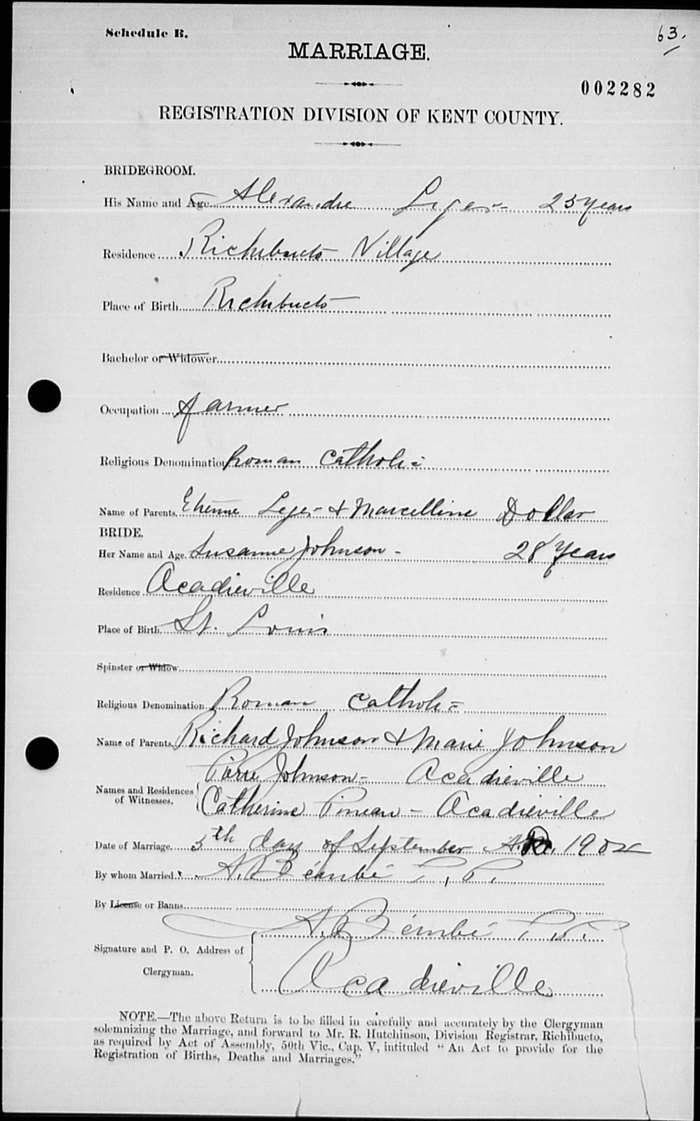 Schedule B.
63.
MARRIAGE.
002282
REGISTRATION DIVISION OF KENT COUNTY.
BRIDEGROOM.
His Name and Age Alexandre Leger 25 years
Residence Richibucto Village
Place of Birth Richibucto
Bachelor or Widower
Occupation farmer
Religious Denomination Roman Catholic
Name of Parents. Etienne Leger & Marcelline Dollar
BRIDE.
Her Name and Age. Susanne Johnson - 28 Years
Residence Acadieville
Place of Birth St. Louis
Spinster or Widow
Religious Denomination Roman Catholic
Name of Parents Richard Johnson & Marie Johnson
Names and Residences of Witnesses. Pierre Johnson - Acadieville
Catherine Pineau - Acadieville
Date of Marriage. 5th day of September A.D. 1902
By whom Married. A. Bembé P.P.
By License or Banns
A. Bembé P.P.
Signature and P. O. Address of Clergyman.
Acadieville
NOTE.—The above Return is to be filled in carefully and accurately by the Clergyman
solemnizing the Marriage, and forward to Mr. R. Hutchinson, Division Registrar, Richibucto,
as required by Act of Assembly, 50th Vic., Cap. V, intituled "An Act to provide for the
Registration of Births, Deaths and Marriages."